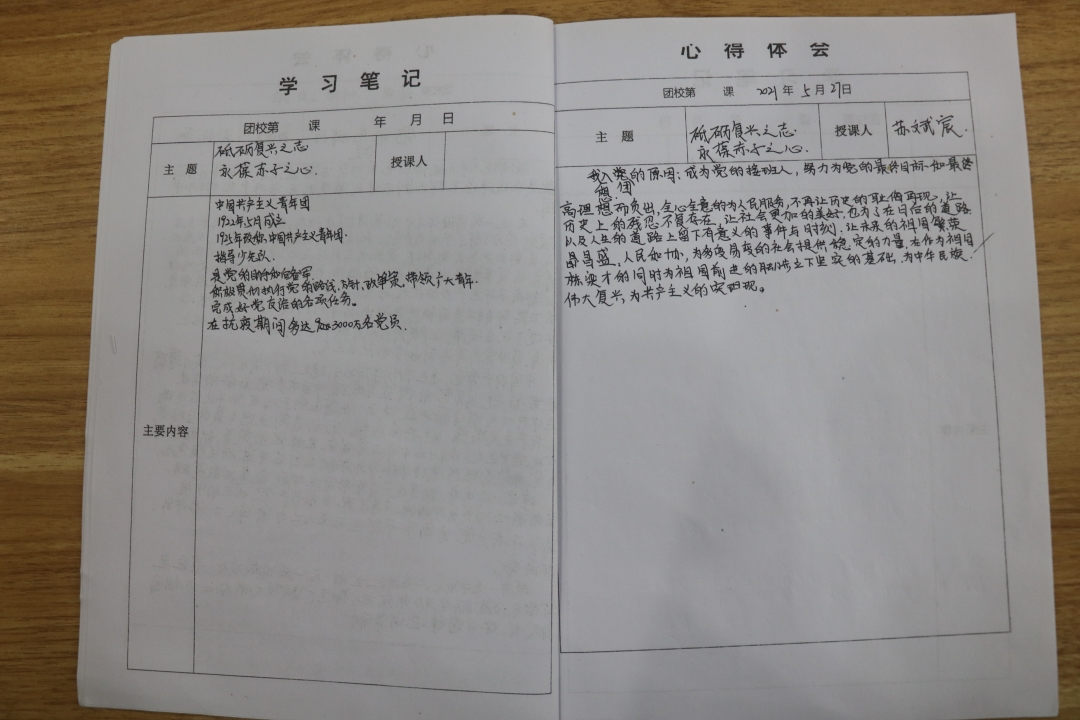 学习笔记
团校第 课 年 月 日
主 题
砥砺复兴之志
永葆赤子之心.
授课人
主要内容
中国共产主义青年团
1922年5月成立
1925年改称中国共产主义青年团.
指导少先队.
是党的助手和后备军
积极贯彻执行党的路线,方针,政策,带领广大青年.
完成好党交给的各项任务。
在抗疫期间多达 3000万名党员.
心得体会
团校第 课 2021年 5月27日
主 题
砥砺复兴之志
永葆赤子之心.
授课人
苏斌宸.
我入党的原因:成为党的接班人,努力为党的最终目标和最终
团
高理想而负出,全心全意的为人民服务,不再让历史的耻偶再现,让
历史上的残忍不复存在,让社会更加的美好.也为了在日后的道路
以及人生的道路上留下有意义的事件与时刻.让未来的祖国繁荣
昌盛,人民和协,为多变易变的社会提供稳定的力量.在作为祖国
栋梁才的同时为祖国前进的 立下坚实的基础,为中华民族
伟大复兴,为共产主义的实现。